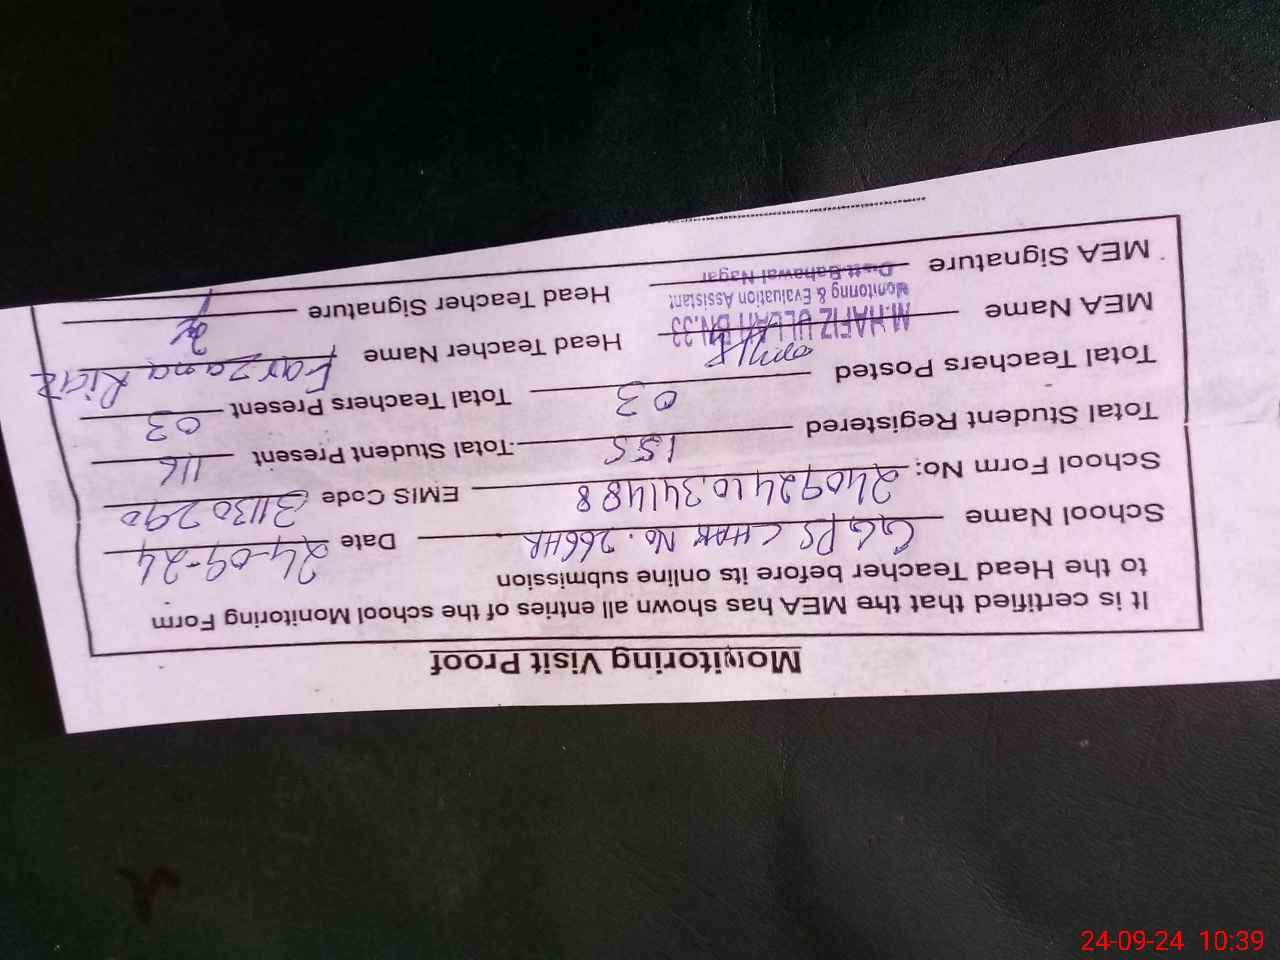 Monitoring Visit Proof
It is certified that the MEA has shown all entries of the school Monitoring Form
to the Head Teacher before its online submission
School Name GGPS CHAK No. 266HR Date 24-09-24
School Form No: 24092410341488 EMIS Code 31130290
Total Student Registered 155 Total Student Present 116
Total Teachers Posted 03 Total Teachers Present 03
MEA Name M.HAFIZ ULLAH BN.33 Head Teacher Name Farzana Riaz
Monitoring & Evaluation Assistant
MEA Signature Distt Bahawal Nagar Head Teacher Signature
24-09-24 10:39